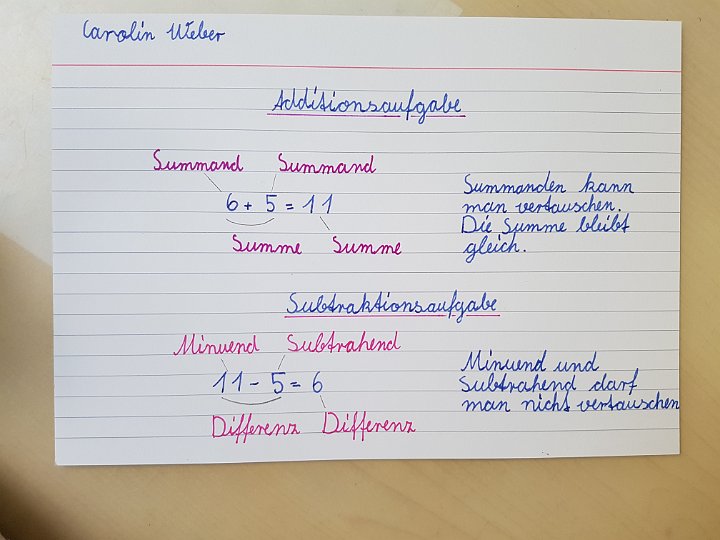 Carolin Weber
Additionsaufgabe
Summand Summand
6 + 5 = 11
Summe Summe
Summanden kann
man vertauschen.
Die Summe bleibt
gleich.
Subtraktionsaufgabe
Minuend Subtrahend
11 - 5 = 6
Differenz Differenz
Minuend und
Subtrahend darf
man nicht vertauschen